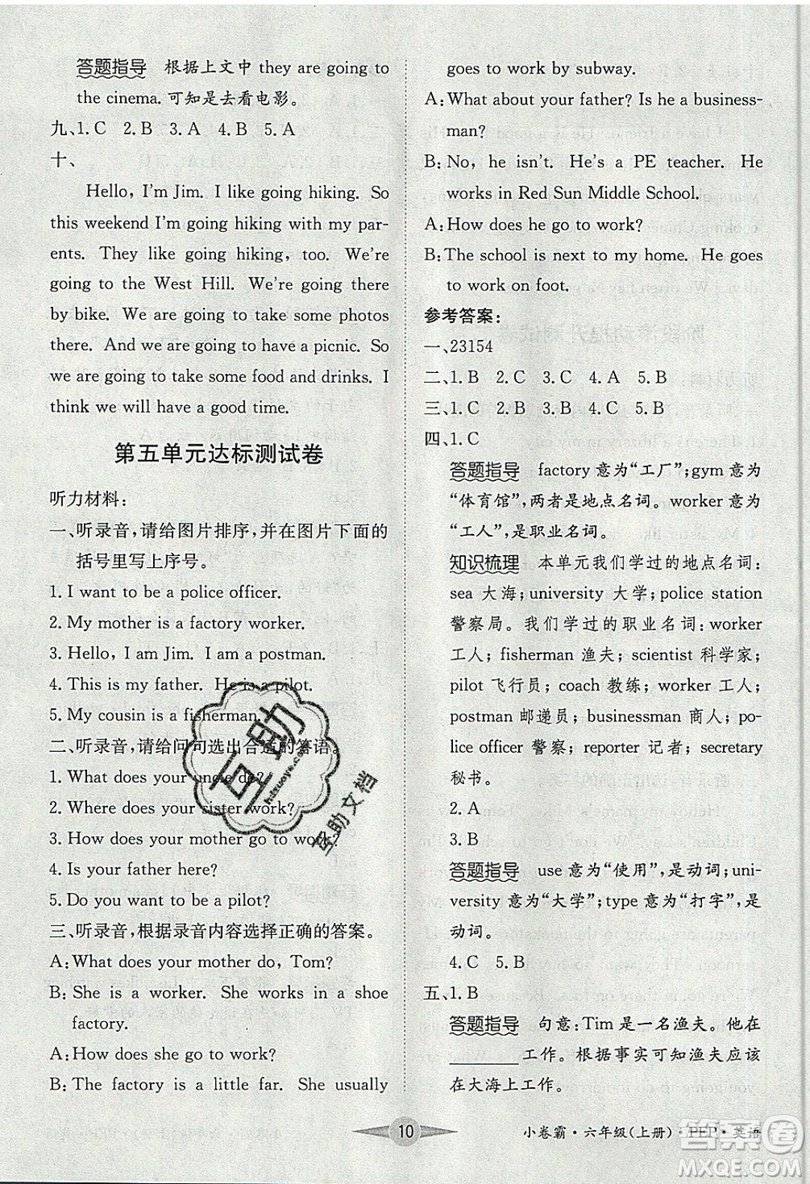 答题指导 根据上文中 they are going to
the cinema. 可知是去看电影。
九、1. C 2. B 3. A 4. B 5. A
十、
Hello, I'm Jim. I like going hiking. So
this weekend I'm going hiking with my par-
ents. They like going hiking, too. We're
going to the West Hill. We're going there
by bike. We are going to take some photos
there. And we are going to have a picnic. So
we are going to take some food and drinks. I
think we will have a good time.
第五单元达标测试卷
听力材料：
一、听录音，请给图片排序，并在图片下面的
括号里写上序号。
1. I want to be a police officer.
2. My mother is a factory worker.
3. Hello, I am Jim. I am a postman.
4. This is my father. He is a pilot.
5. My cousin is a fisherman.
二、听录音，请给问句选出合适的答语。
1. What does your uncle do?
2. Where does your sister work?
3. How does your mother go to work?
4. Is your father here?
5. Do you want to be a pilot?
三、听录音，根据录音内容选择正确的答案。
A: What does your mother do, Tom?
B: She is a worker. She works in a shoe
factory.
A: How does she go to work?
B: The factory is a little far. She usually
goes to work by subway.
A: What about your father? Is he a business-
man?
B: No, he isn't. He's a PE teacher. He
works in Red Sun Middle School.
A: How does he go to work?
B: The school is next to my home. He goes
to work on foot.
参考答案：
一、23154
二、1. B 2. B 3. C 4. A 5. B
三、1. C 2. B 3. C 4. B 5. B
四、1. C
答题指导 factory 意为“工厂”；gym 意为
“体育馆”，两者是地点名词。worker 意为
“工人”，是职业名词。
知识梳理 本单元我们学过的地点名词：
sea 大海；university 大学；police station
警察局。我们学过的职业名词：worker
工人；fisherman 渔夫；scientist 科学家；
pilot 飞行员；coach 教练；worker 工人；
postman 邮递员；businessman 商人；po-
lice officer 警察；reporter 记者；secretary
秘书。
2. A
3. B
答题指导 use 意为“使用”，是动词；uni-
versity 意为“大学”；type 意为“打字”，是
动词。
4. C 5. B
五、1. B
答题指导 句意：Tim 是一名渔夫。他在
______工作。根据事实可知渔夫应该
在大海上工作。
10
小卷霸·六年级(上册)·PEP·英语
互助
互助文档
答案圈
MXQE.COM